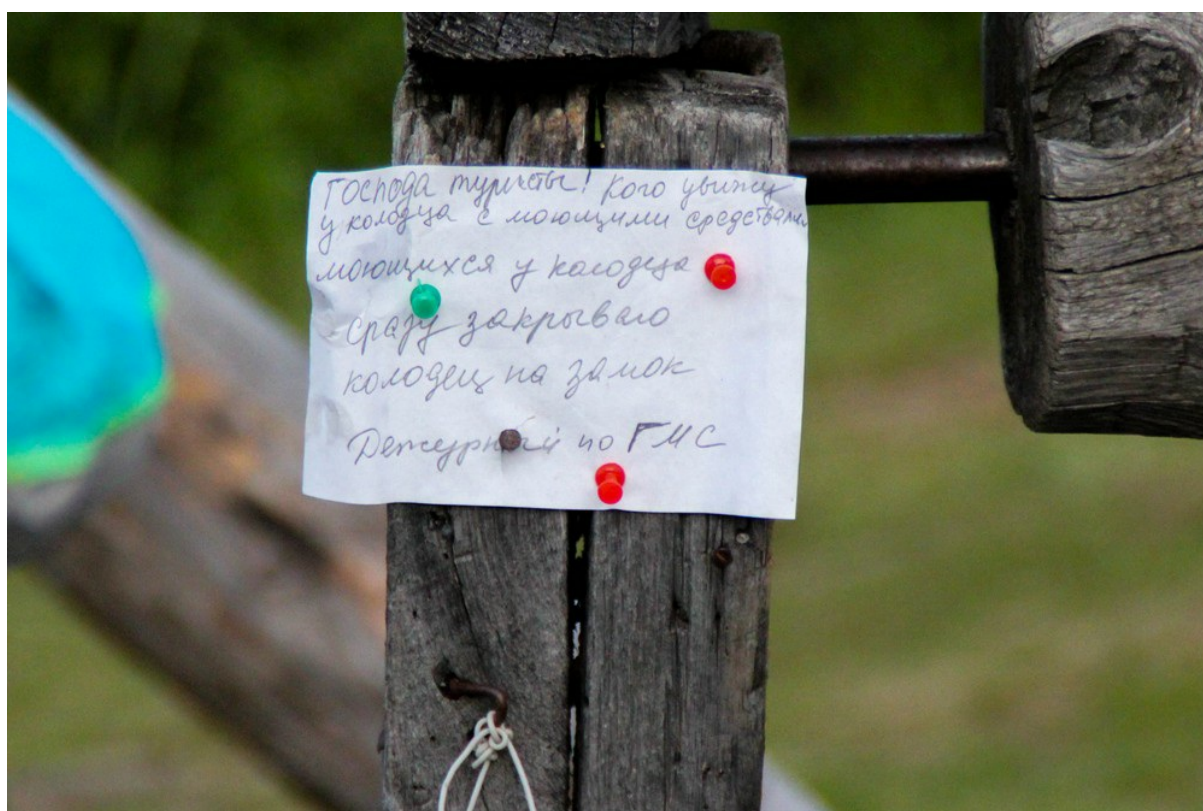 Господа туристы! Кого увижу
у колодца с моющими средствами
моющихся у колодца
сразу закрываю
колодец на замок
Дежурный по ГМС